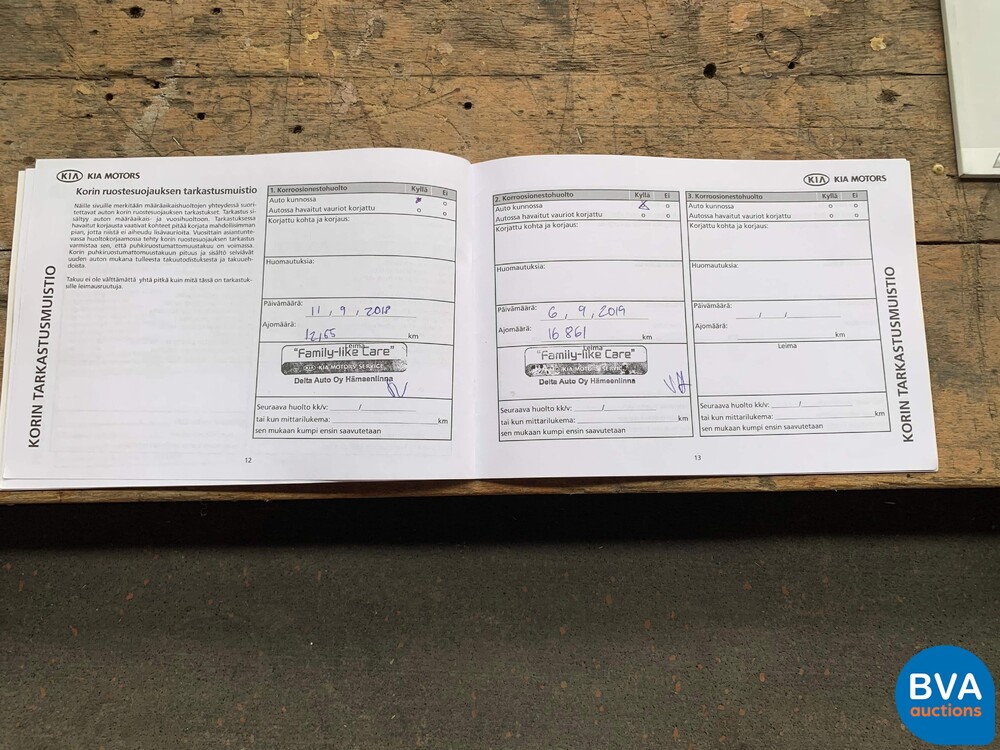 KIA KIA MOTORS
Korin ruostesuojauksen tarkastusmuistio
Näille sivuille merkitään määräaikaishuoltojen yhteydessä suori-
tettavat auton korin ruostesuojauksen tarkastukset. Tarkastus si-
sältyy auton määräaikais- ja vuosihuoltoon. Tarkastuksessa
havaitut korjausta vaativat kohteet pitää korjata mahdollisimman
pian, jotta niistä ei aiheudu lisävaurioita. Vuosittain asiantunte-
vassa huoltokorjaamossa tehty korin ruostesuojauksen tarkastus
varmistaa sen, että puhkiruostumattomuustakuu on voimassa.
Korin puhkiruostumattomuustakuun pituus ja sisältö selviävät
uuden auton mukana tulleesta takuutodistuksesta ja takuueh-
doista.
Takuu ei ole välttämättä yhtä pitkä kuin mitä tässä on tarkastuk-
sille leimausruutuja.
KORIN TARKASTUSMUISTIO
1. Korroosionestohuolto Kyllä Ei
Auto kunnossa o
Autossa havaitut vauriot korjattu o o
Korjattu kohta ja korjaus:
Huomautuksia:
Päivämäärä: 11 , 9 , 2018
Ajomäärä: 12155 km
Leima
"Family-like Care"
KIA MOTORS SERVICE
Delta Auto Oy Hämeenlinna
Seuraava huolto kk/v: /
tai kun mittarilukema: km
sen mukaan kumpi ensin saavutetaan
12
2. Korroosionestohuolto Kyllä Ei
Auto kunnossa X o
Autossa havaitut vauriot korjattu o o
Korjattu kohta ja korjaus:
Huomautuksia:
Päivämäärä: 6 , 9 , 2019
Ajomäärä: 16 861 km
Leima
"Family-like Care"
KIA MOTORS SERVICE
Delta Auto Oy Hämeenlinna
Seuraava huolto kk/v: /
tai kun mittarilukema: km
sen mukaan kumpi ensin saavutetaan
13
KIA KIA MOTORS
3. Korroosionestohuolto Kyllä Ei
Auto kunnossa o o
Autossa havaitut vauriot korjattu o o
Korjattu kohta ja korjaus:
Huomautuksia:
Päivämäärä: / /
Ajomäärä: km
Leima
Seuraava huolto kk/v: /
tai kun mittarilukema: km
sen mukaan kumpi ensin saavutetaan
KORIN TARKASTUSMUISTIO
BVA
auctions